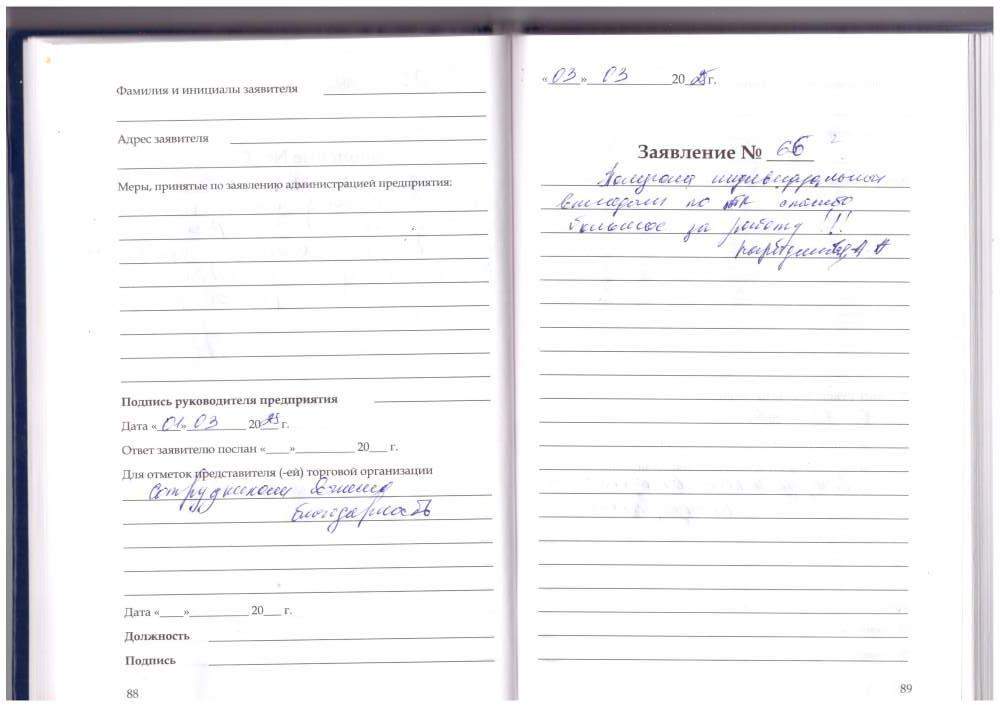 Фамилия и инициалы заявителя
Адрес заявителя
Меры, принятые по заявлению администрацией предприятия:
Подпись руководителя предприятия
Дата «01» 03 2025 г.
Ответ заявителю послан «____»__________ 20___ г.
Для отметок представителя (-ей) торговой организации
сотрудникам
благодарность
Дата «____»__________ 20___ г.
Должность
Подпись
88
«03» 03 2025 г.
Заявление № 66
по спасибо
большое за работу !!
89